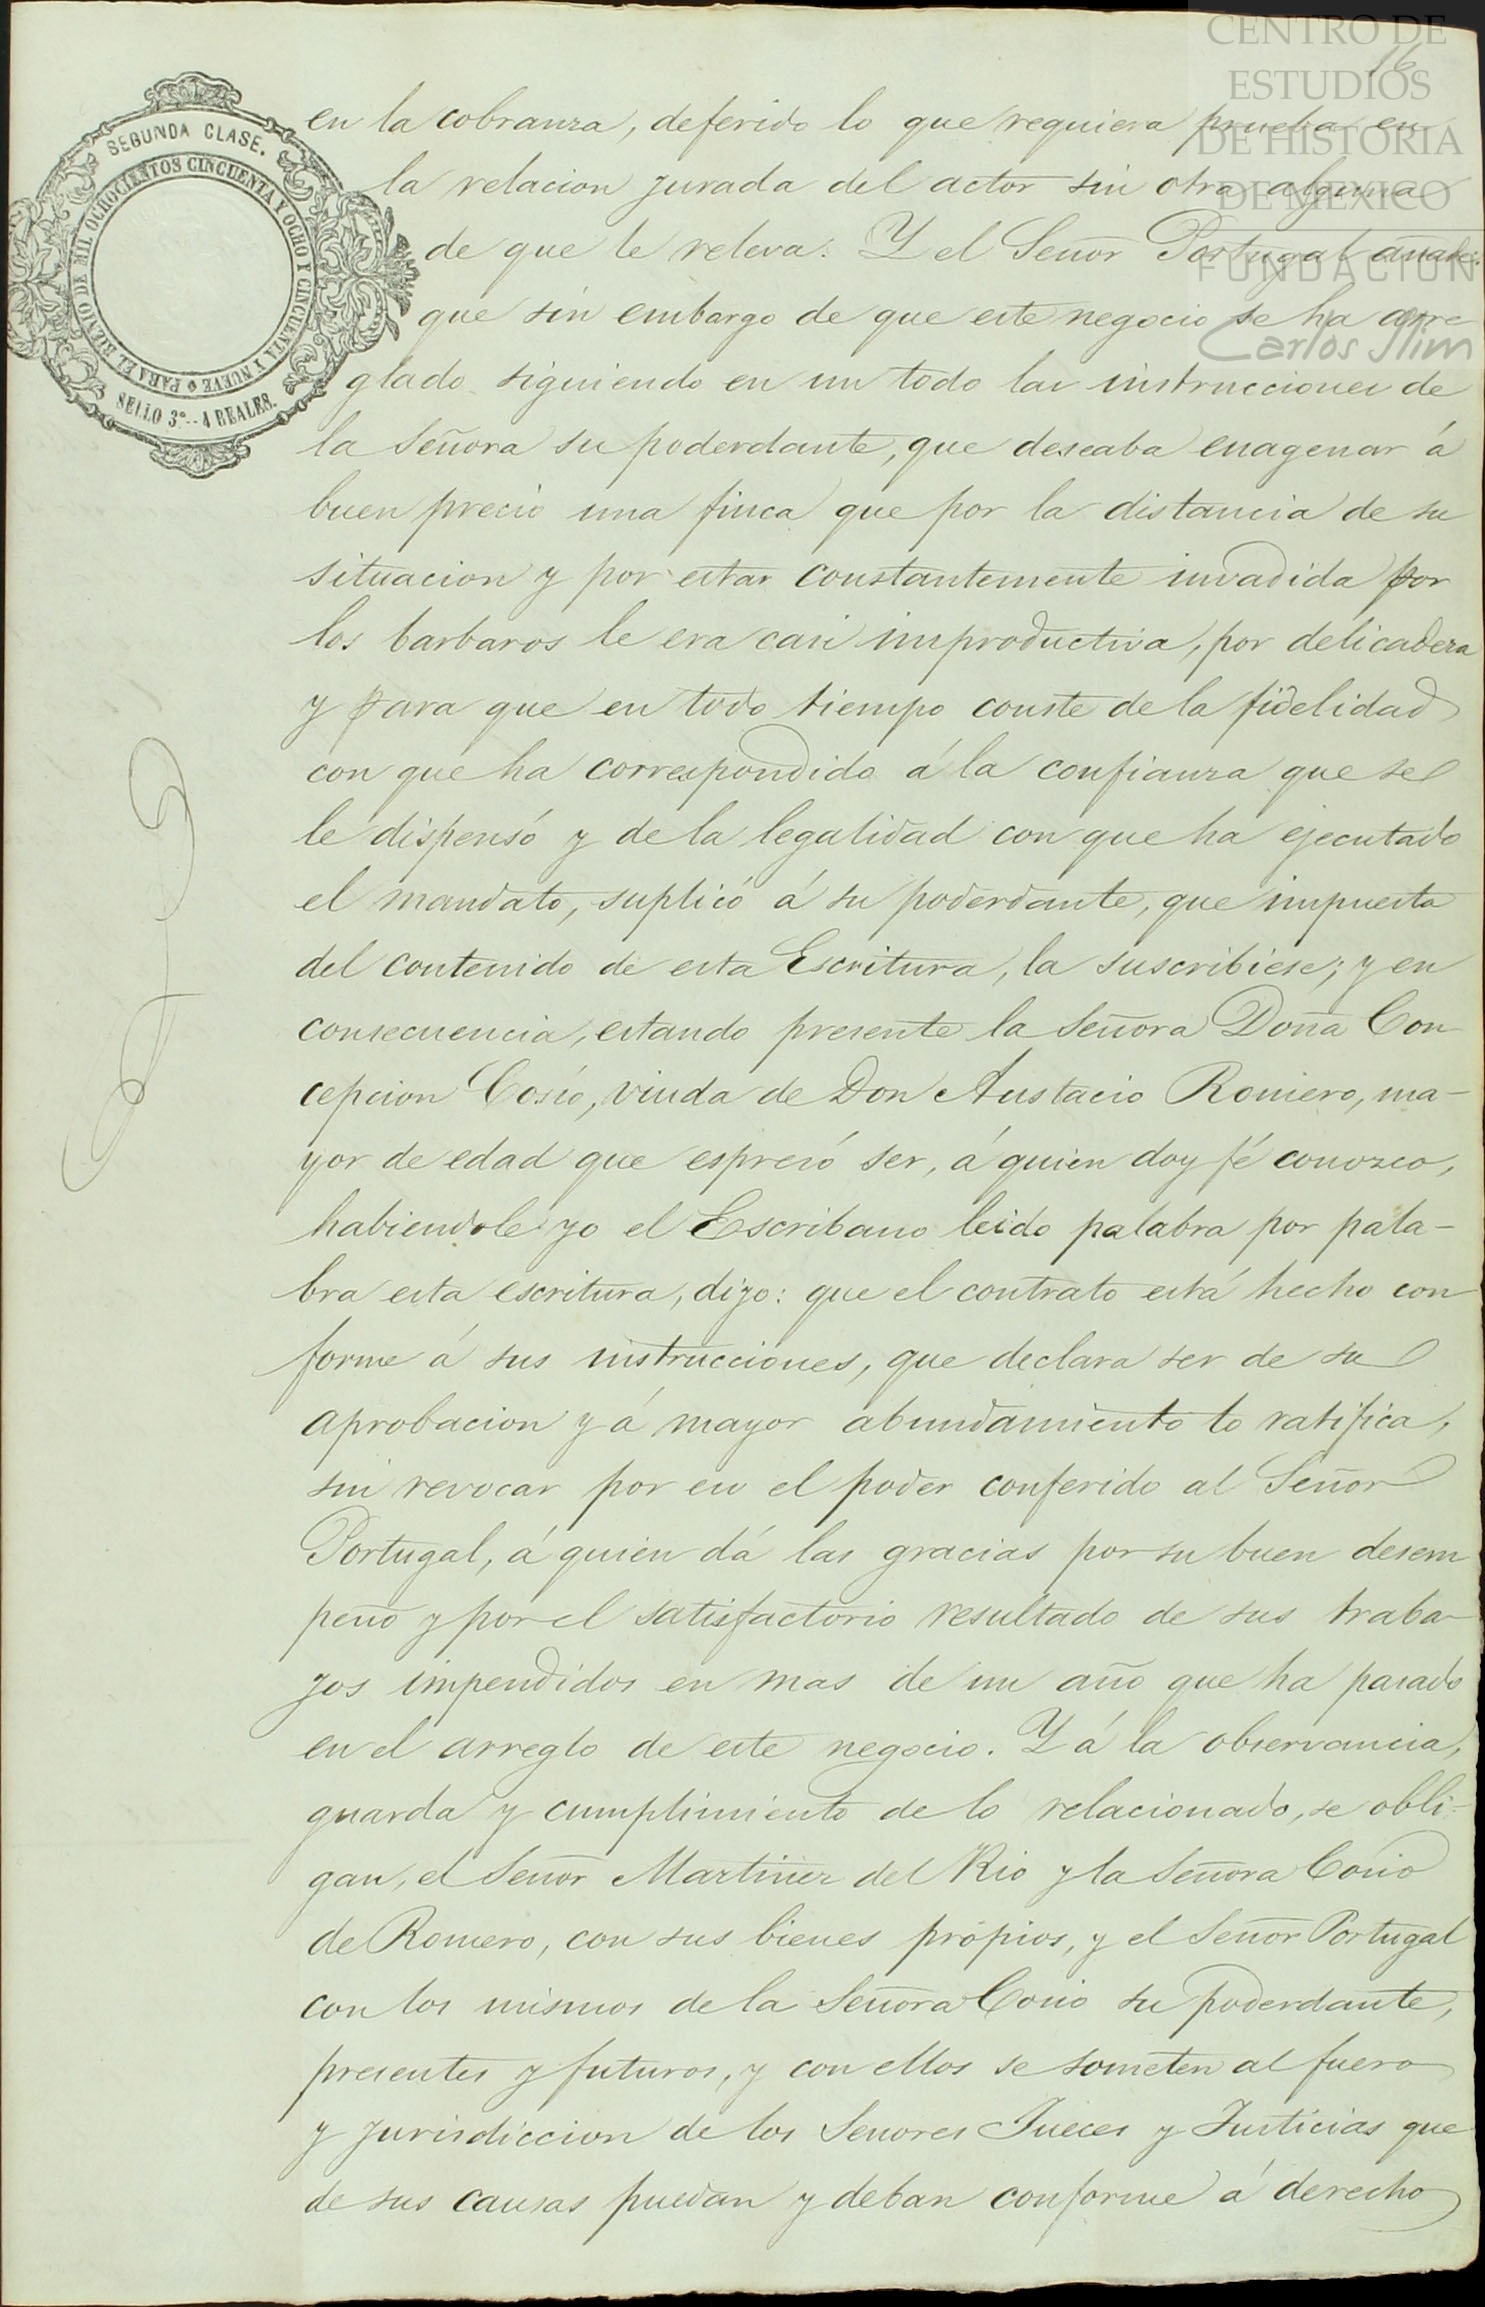 CENTRO DE
ESTUDIOS
DE HISTORIA
DE MEXICO
FUNDACION
Carlos Slim
16
SEGUNDA CLASE.
PARA EL BIENIO DE MIL OCHOCIENTOS CINCUENTA Y OCHO Y CINCUENTA Y NUEVE
SELLO 3º--4 REALES.
en la cobranza, deferido lo que requiera prueba en
la relacion jurada del actor sin otra alguna
de que le releva. Y el Señor Portugal añade:
que sin embargo de que este negocio se ha arre-
glado siguiendo en un todo las instrucciones de
la Señora su poderdante, que deseaba enagenar á
buen precio una finca que por la distancia de su
situacion y por estar constantemente invadida por
los barbaros le era casi improductiva, por delicadeza
y para que en todo tiempo conste de la fidelidad
con que ha correspondido á la confianza que se
le dispensó y de la legalidad con que ha ejecutado
el mandato, suplicó á su poderdante, que impuesta
del contenido de esta Escritura, la suscribiese; y en
consecuencia, estando presente la Señora Doña Con
cepcion Cosío, viuda de Don Austacio Romero, ma-
yor de edad que espresó ser, á quien doy fé conozco,
habiendole yo el Escribano leido palabra por pala-
bra esta escritura, dijo: que el contrato está hecho con
forme á sus instrucciones, que declara ser de su
aprobacion y á mayor abundamiento lo ratifica,
sin revocar por eso el poder conferido al Señor
Portugal, á quien dá las gracias por su buen desem
peño y por el satisfactorio resultado de sus traba-
jos impendidos en mas de un año que ha pasado
en el arreglo de este negocio. Y á la observancia,
guarda y cumplimiento de lo relacionado, se obli-
gan, el Señor Martinez del Rio y la Señora Cosio
de Romero, con sus bienes propios, y el Señor Portugal
con los mismos de la Señora Cosio su poderdante,
presentes y futuros, y con ellos se someten al fuero
y jurisdiccion de los Señores Jueces y Justicias que
de sus causas puedan y deban conforme á derecho